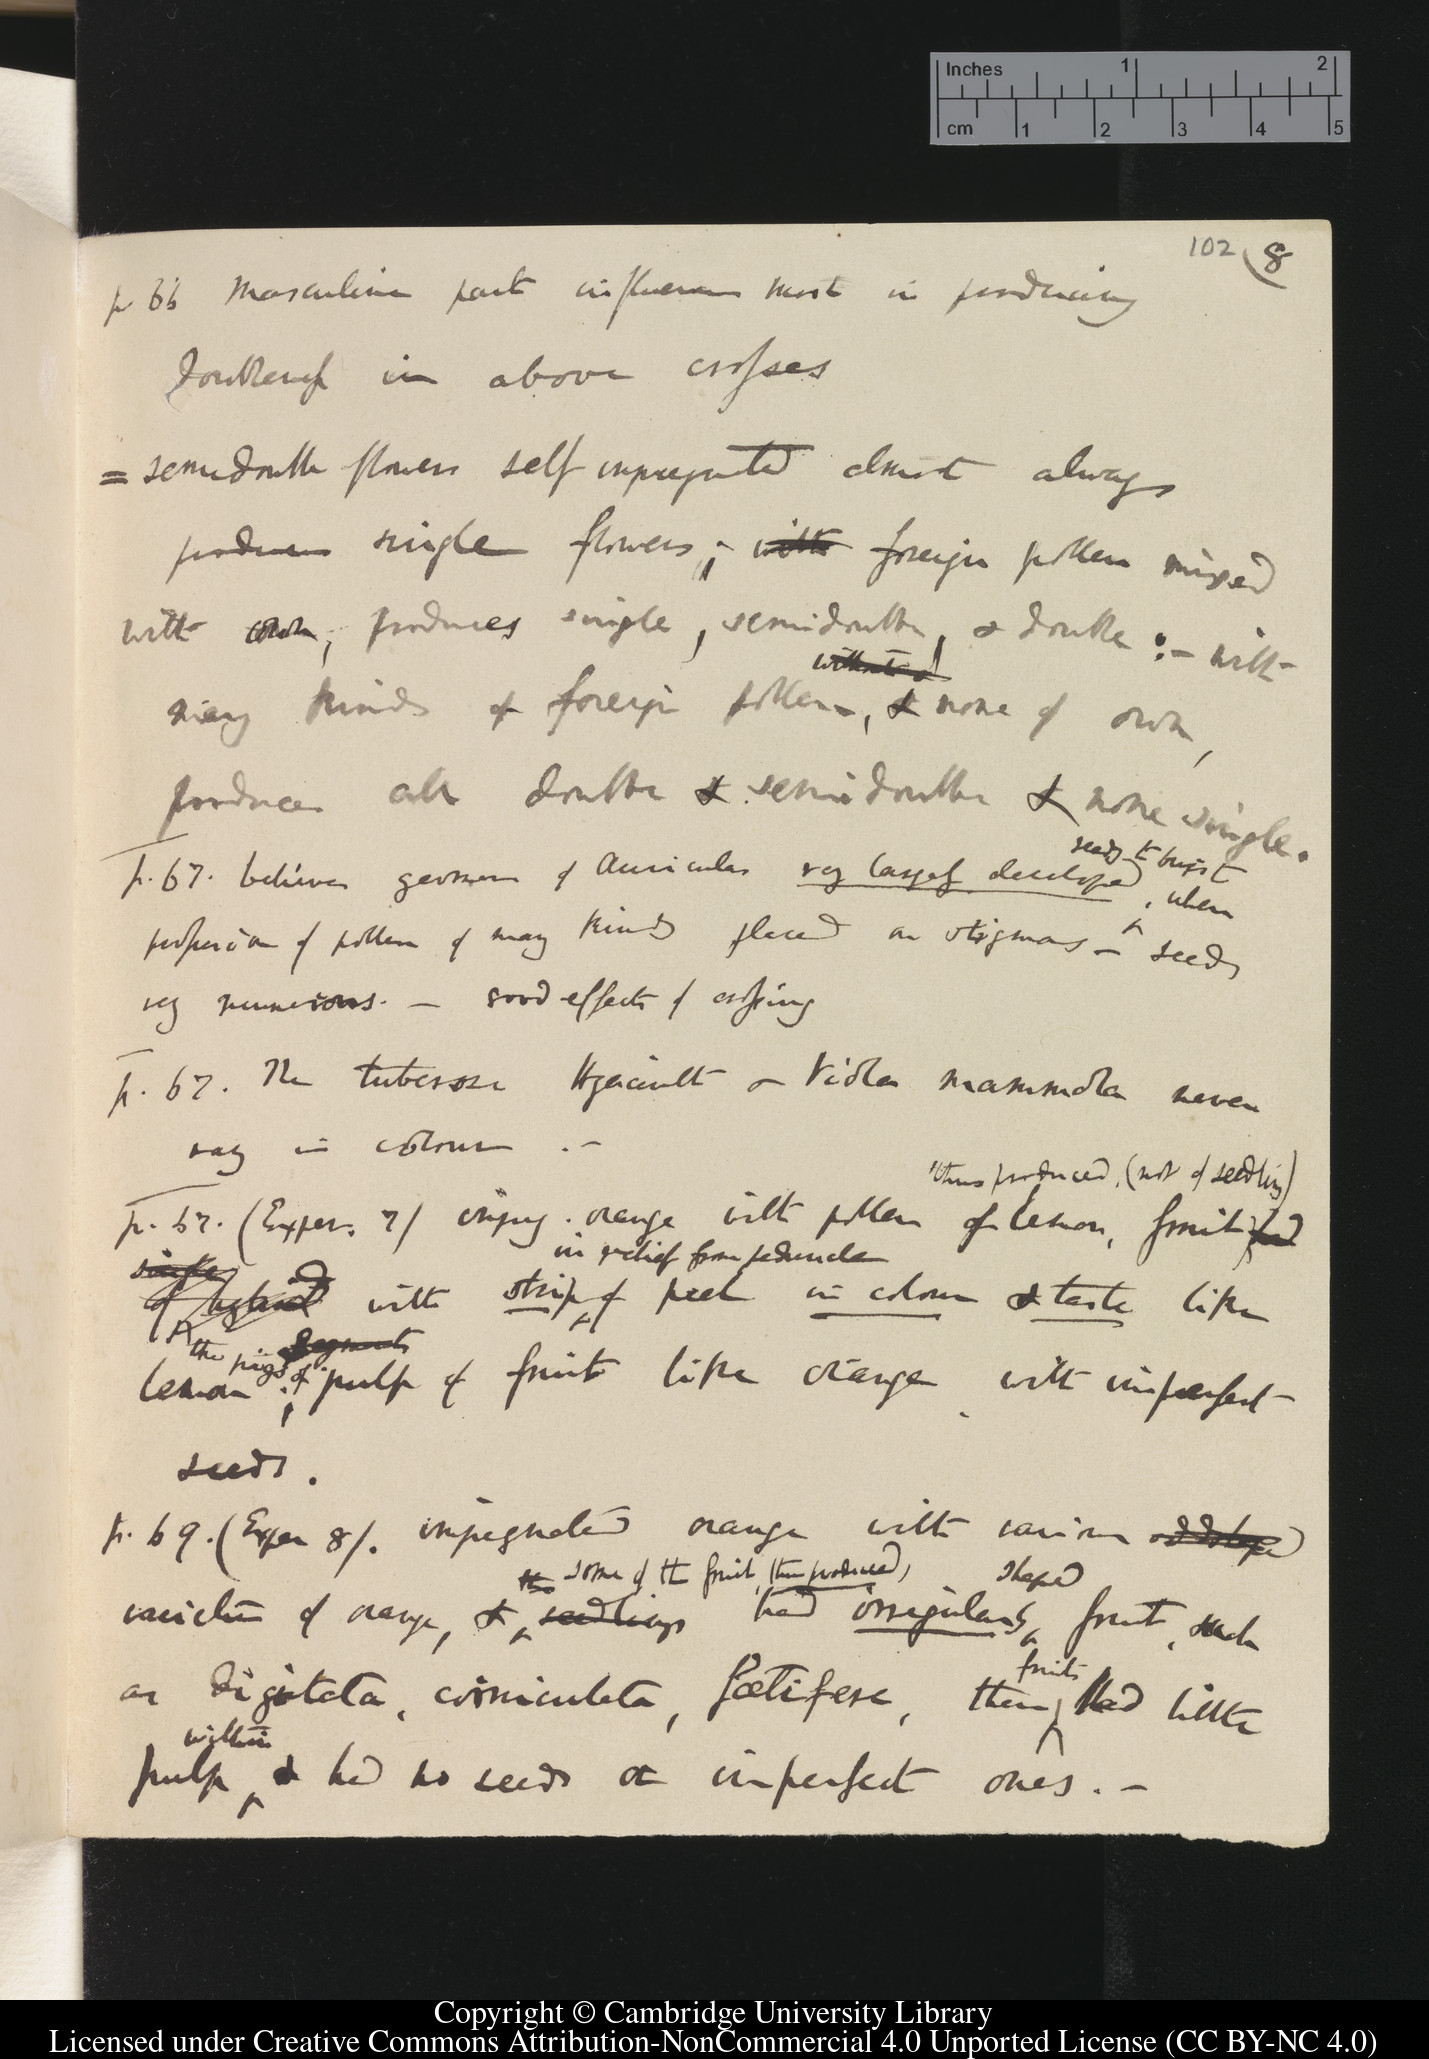 Inches 1 2
cm 1 2 3 4 5
102 (8
p 66 Masculine part influences most in producing
doubleness in above crosses
= semidouble flowers self impregnated almost always
produces single flowers; – with foreign pollen mixed
with own, produces single, semidouble, & double :– with
without
many kinds of foreign pollen, & none of own,
produces all double & semidouble & none single.
ready to burst
p. 67. believes germen of Auriculas very largely developed, when
profusion of pollen of many kinds placed on stigmas – seeds
very numerous. – good effects of crossing
p. 67. The tuberose Hyacinth & Viola mammola never
vary in colour . –
thus produced, (not of seedling)
p. 67. (Exper. 7) impreg. orange with pollen of lemon, fruit had
in relief from peduncle
single
of hybrid with strip of peel in colour & taste like
the pigs of segments
lemon ; pulp of fruit like orange with imperfect
seeds.
p. 69. (Exper 8). impregnated orange with various
the some of the fruit, thus produced, shaped
varieties of orange, & seedlings had irregularly fruit, such
fruits
as digitata, corniculata, foetifera, these had little
within
pulp & had no seeds or imperfect ones. –
Copyright © Cambridge University Library
Licensed under Creative Commons Attribution-NonCommercial 4.0 Unported License (CC BY-NC 4.0)